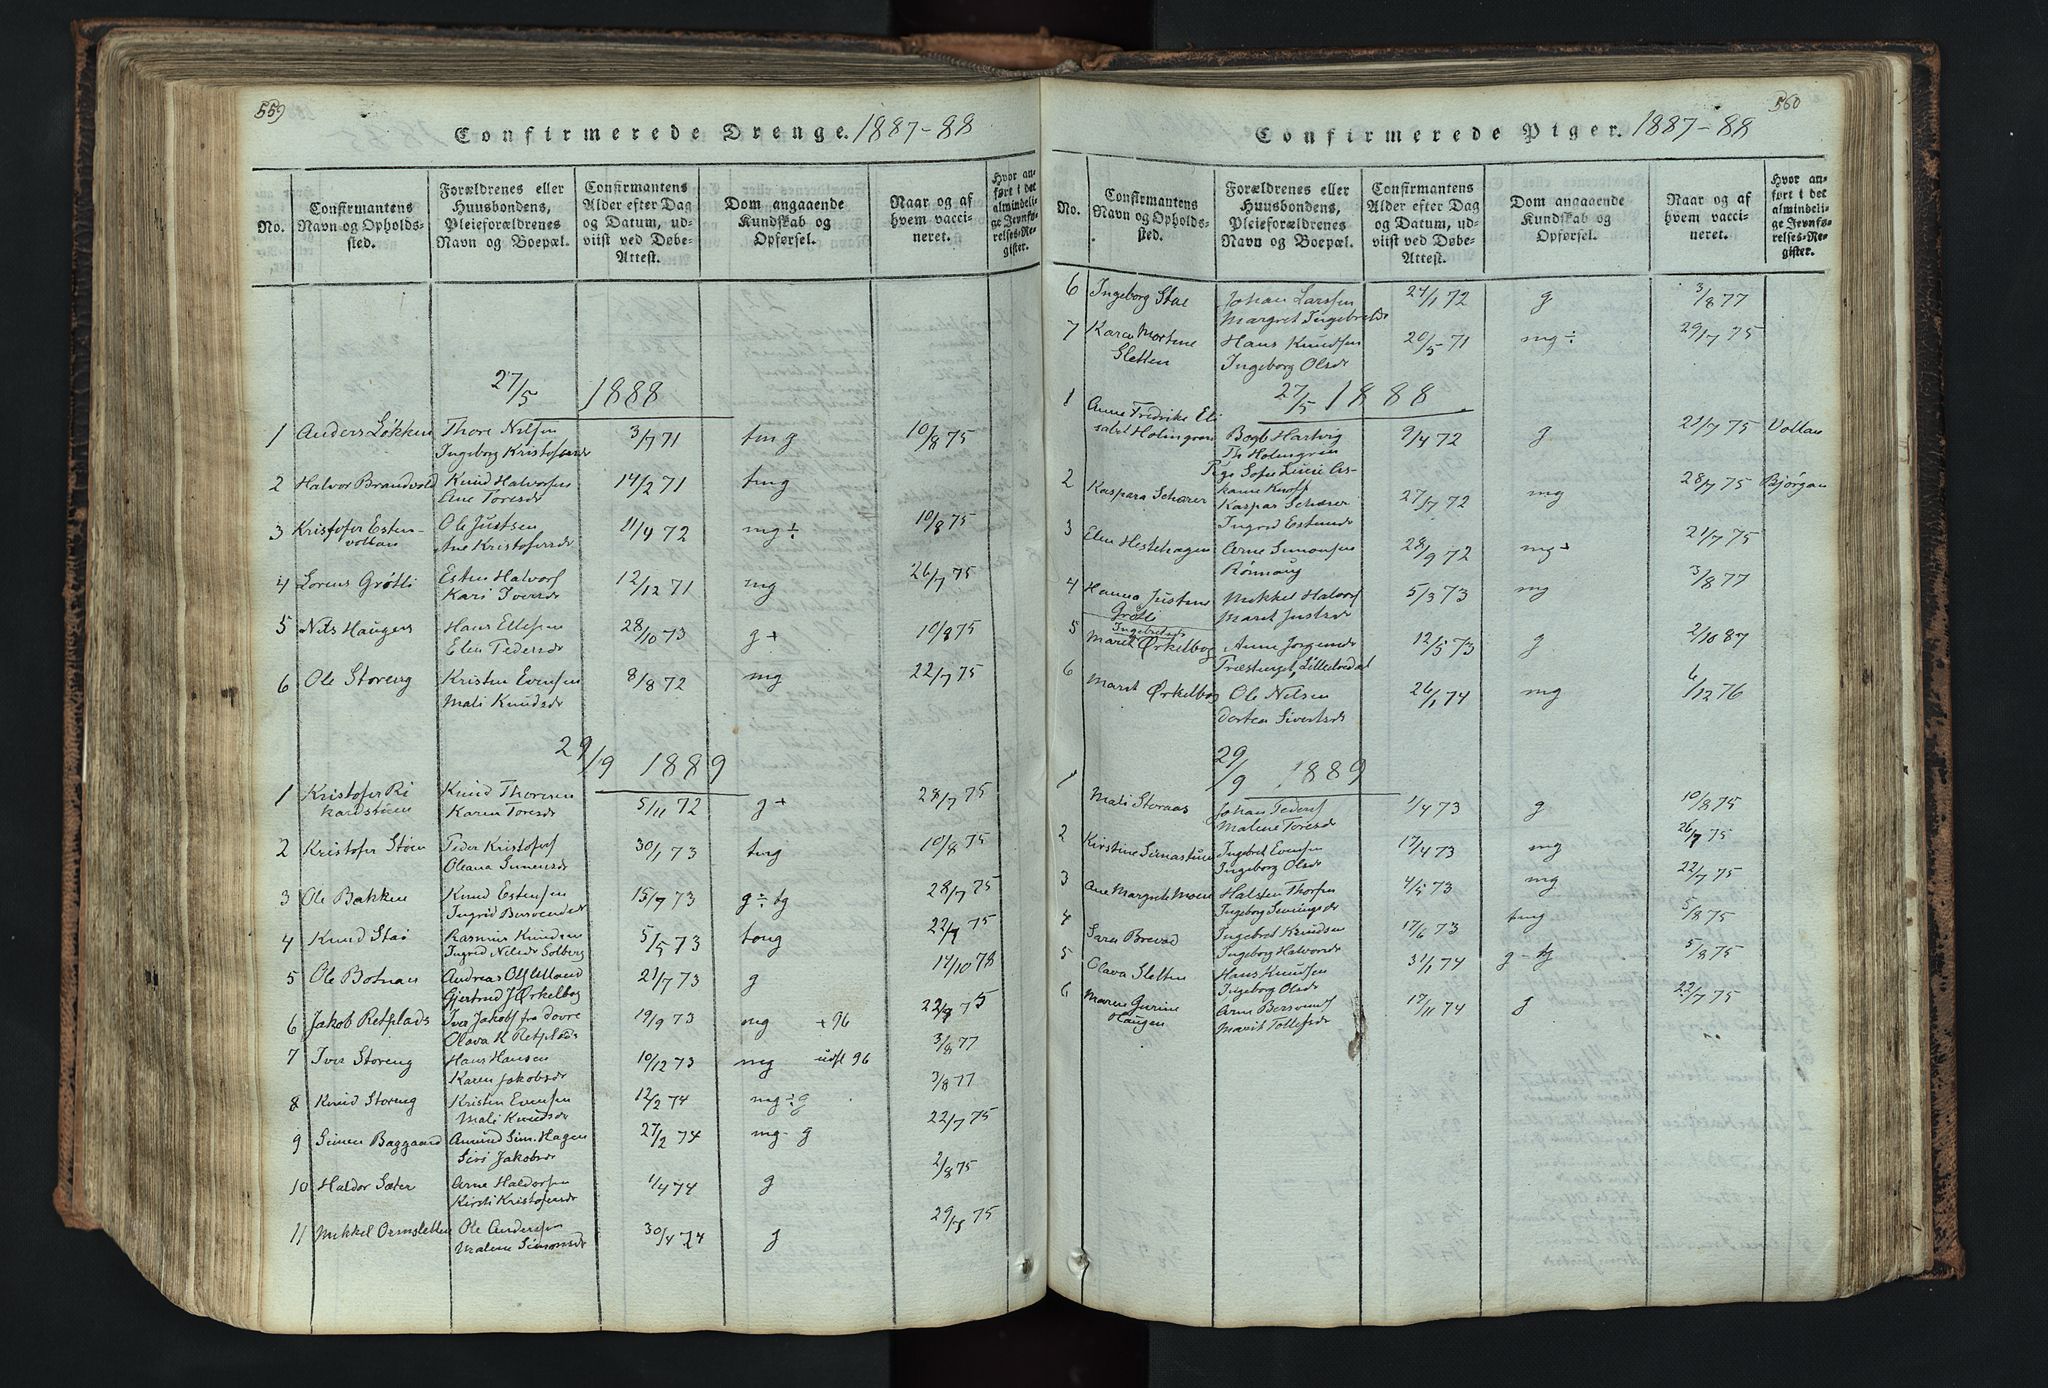 559
Confirmerede Drenge. 1887-88
No.
Confirmantens Navn og Opholdssted.
Forældrenes eller Huusbondens, Pleieforældrenes Navn og Boepæl.
Confirmantens Alder efter Dag og Datum, udviist ved Døbe-Attest.
Dom angaaende Kundskab og Opførsel.
Naar og af hvem vaccineret.
Hvor anført i det almindelige Jevnførelses-Register.
27/5 1888
1 Anders Løkken Thore Nilsen 3/7 71 tmg 10/8 75
Ingeborg Kristofersdr
2 Halvor Brandvold Knud Halvorsen 14/2 71 tmg
Ane Toresdr
3 Kristofer Esten- Ole Justsen 11/4 72 mg÷ 10/8 75
vollan Ane Kristofersdr
4 Lorens Grøtli Esten Halvors 12/12 71 mg 26/7 75
Kari Iversdr
5 Nils Haugen Hans Ellefsen 28/10 73 g+ 10/8 75
Elen Pedersdr
6 Ole Storeng Kristen Evensen 8/8 72 mg 22/7 75
Mali Knudsdr
29/9 1889
1 Kristofer Ri Knud Thoresen 5/11 72 g+ 28/7 75
kardstuen Karen Toresdr
2 Kristofer Støen Peder Kristofers 30/1 73 tmg 10/8 75
Oleana Simensdr
3 Ole Bakken Knud Estensen 15/7 73 g÷tg 28/7 75
Ingrid Bersvendsdr
4 Knud Stai Rasmus Knudsen 5/5 73 tmg 22/7 75
Ingrid Nilsdr Solberg
5 Ole Botnan Andreas 21/7 73 g 14/10 78
Gjertrud J Ørkelbog
6 Jakob Retplads Iver Jakobs fra Dovre 19/9 73 mg +96 22/7 75
Olava K Retplads
7 Iver Storeng Hans Hansen 10/12 73 mg udfl 96 3/8 77
Karen Jakobsdr
8 Knud Storeng Kristen Evensen 12/2 74 mg÷g 3/8 77
Mali Knudsdr
9 Simen Baggaard Amund Sim. Hagen 27/2 74 mg-g 22/7 75
Siri Jakobsdr
10 Haldor Sæter Arne Haldorsen 1/4 74 g 2/8 75
Kirsti Kristofersdr
11 Mikkel Ormsletten Ole Anderssen 30/4 74 g 29/7 75
Malene Simonsdr
560
Confirmerede Piger. 1887-88
No.
Confirmantens Navn og Opholdssted.
Forældrenes eller Huusbondens, Pleieforældrenes Navn og Boepæl.
Confirmantens Alder efter Dag og Datum, udviist ved Døbe-Attest.
Dom angaaende Kundskab og Opførsel.
Naar og af hvem vaccineret.
Hvor anført i det almindelige Jevnførelses-Register.
6 Ingeborg Stai Johan Larssen 24/1 72 g 3/8 77
Margret Ingebrisdr
7 Karen Mortine Hans Knudsen 20/5 71 mg÷ 29/7 75
Sletten Ingeborg Olsdr
27/5 1888.
1 Anne Fredrike Eli
sabet Holmgren Bogb Hartvig 9/4 72 g 21/7 75 Vollan
Th Holmgren
Sofie
2 Kaspara Schærer Kaspar Schærer 27/7 72 mg 28/7 75 Bjørgan
Ingrid Estensdr
3 Elen Hestehagen Arne Simonsen 28/9 72 mg+ 21/7 75
Rønnaug
4 Hanna Justine Mikkel Halvors 5/3 73 mg 3/8 77
Grøtli Maret Justsdr
5 Ingebretsdr
Maret Ørkelbog Anne Jørgensdr 12/5 73 g 2/10 87
Præsteget, Lilleelvedal
6 Maret Ørkelbog Ole Nilsen 26/1 74 mg 6/12 76
Dortea Sivertsdr
29/9 1889
1 Mali Storaas Johan Peders 1/4 73 g 10/8 75
Malene Toresdr
2 Kirstine Simastuen Ingebret Evensen 17/4 73 mg 26/7 75
Ingeborg Olsdr
3 Ane Margrete Moen Halsten Thorsen 4/5 73 mg 22/7 75
Ingeborg
4 Sara Brevad Ingebret Knudsen 17/6 73 tmg 5/8 75
Ingeborg Halvorsdr
5 Olava Sletten Hans Knudsen 31/1 74 g-tg 5/8 75
Ingeborg Olsdr
6 Maren Gurine Arne Bersvends 17/11 74 g 22/7 75
Haugen Marit Tollefsdr